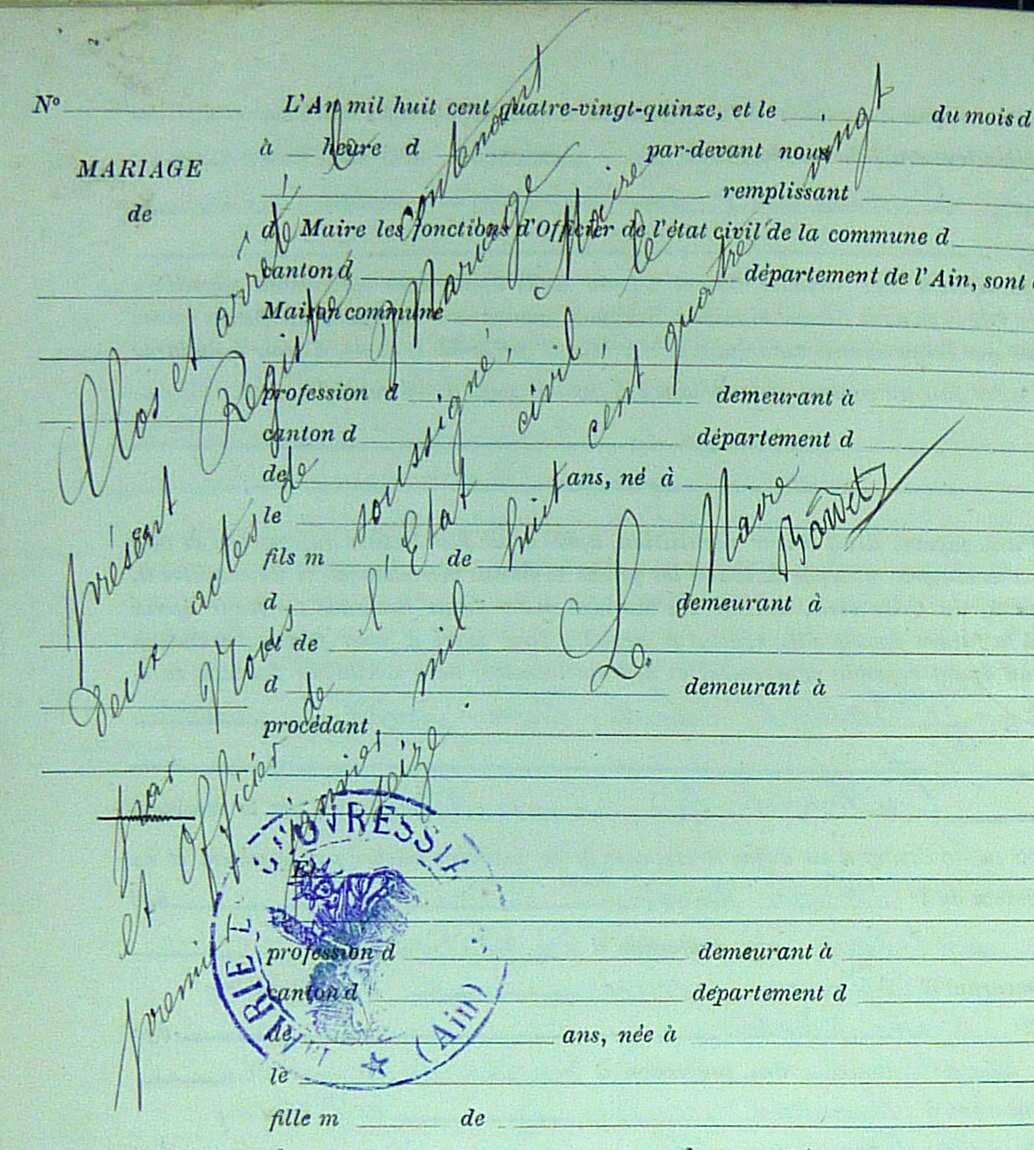 N°
MARIAGE
de
L'An mil huit cent quatre-vingt-quinze, et le du mois d
à heure d par-devant nous
remplissant
d Maire les fonctions d'Officier de l'état civil de la commune d
canton d département de l'Ain, sont
Maison commune
profession d demeurant à
canton d département d
de ans, né à
le
fils m de
d demeurant à
et de
d demeurant à
procédant
Et
profession d demeurant à
canton d département d
de ans, née à
le
fille m de
Clos et arrêté le
présent Registre contenant
deux actes de Mariage
par Nous soussigné, Maire
et Officier de l'Etat civil, le vingt
premier janvier mil huit cent quatre
seize.
Le Maire
MAIRIE
(Ain)